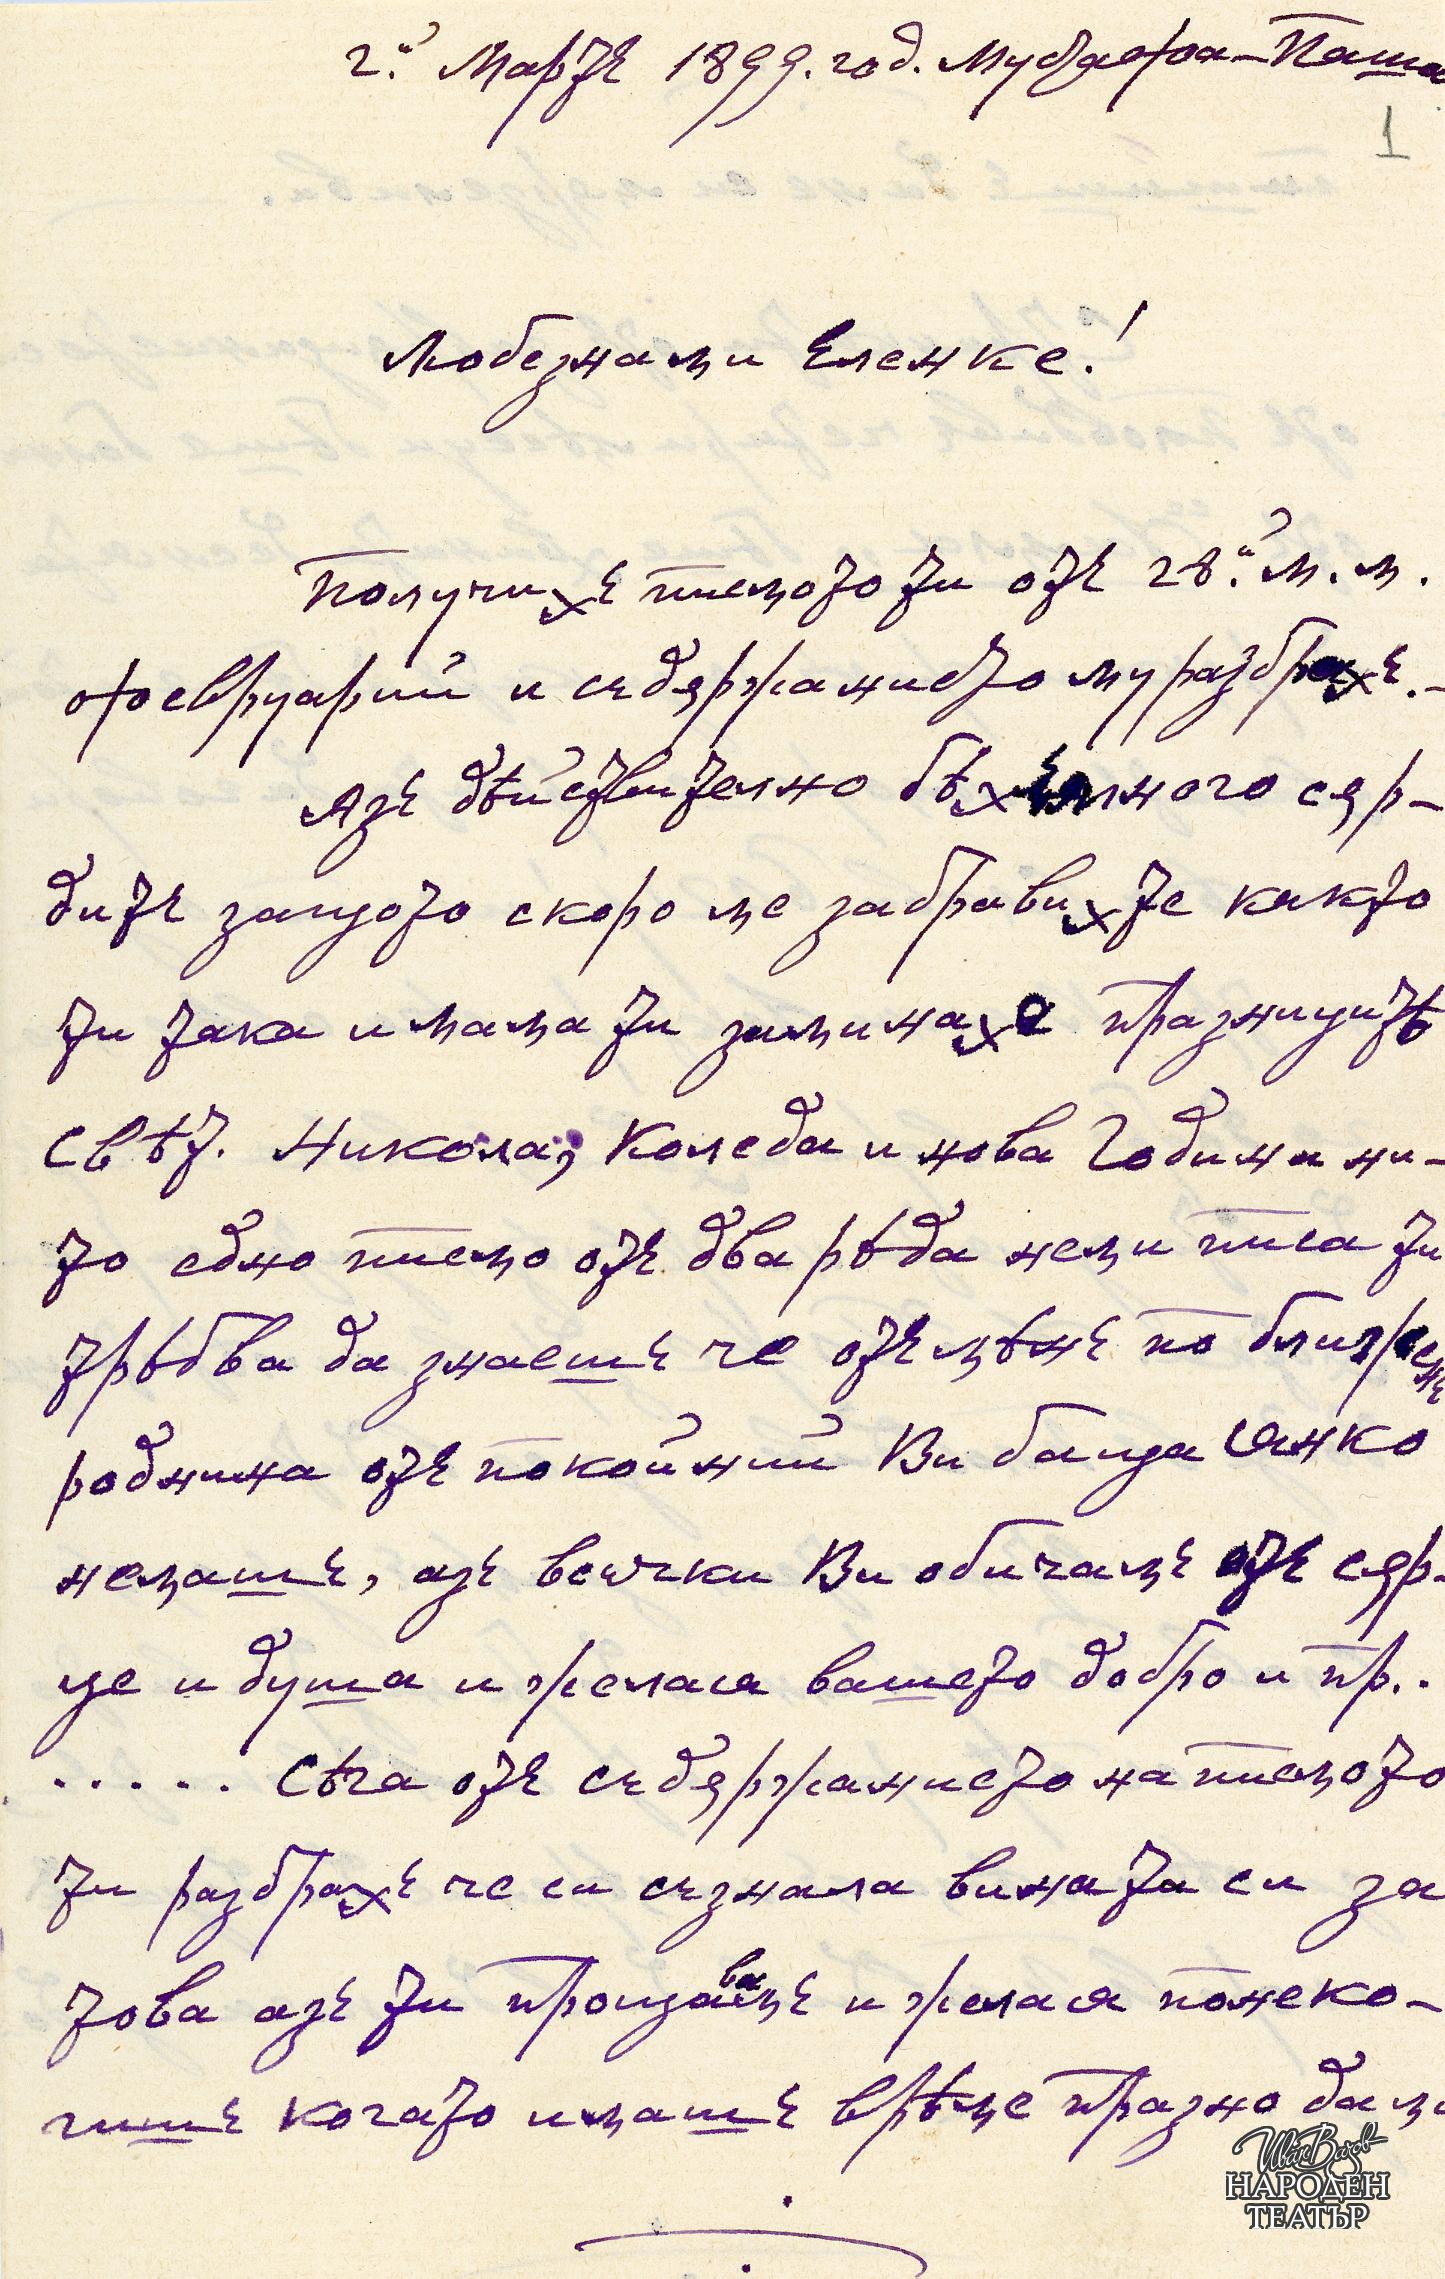 2.й Мартъ 1899. год. Мустафа-Паша
1
Любезнами Еленке!
Получихъ писмото ти отъ 28.й м.м.
февруарий и съдържанието му разбрахъ.-
Азъ дѣйствително бѣхъ много сър-
дитъ защото скоро ме забравихте както
ти така и мама ти заминаха празницитѣ
Свѣт. Никола, Коледа и нова Година ни-
то едно писмо отъ два рѣда неми писа ти
трѣбва да знаешъ че отъ мѣнъ по близъкъ
роднина отъ покойний Ви баща Янко
немашъ, азъ всички Ви обичамъ отъ сър-
це и душа и желая вашето добро и пр..
..... Сѣга отъ съдържанието на писмото
ти разбрахъ че си съзнала вината си за
това азъ ти прощавамъ и желая понеко-
гишъ когато имашъ врѣме празно да ми
Иван Вазов
НАРОДЕН
ТЕАТЪР